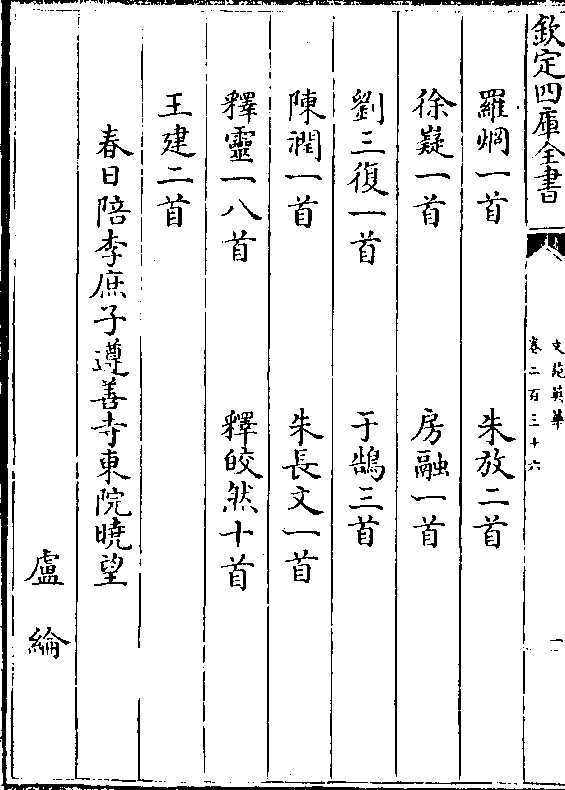 欽定四庫全書
文苑英華
卷二百三十六
一
羅烱一首 朱放二首
徐嶷一首 房融一首
劉三復一首 于鵠三首
陳潤一首 朱長文一首
釋靈一八首 釋皎然十首
王建二首
春日陪李庶子遵善寺東院曉望
盧綸